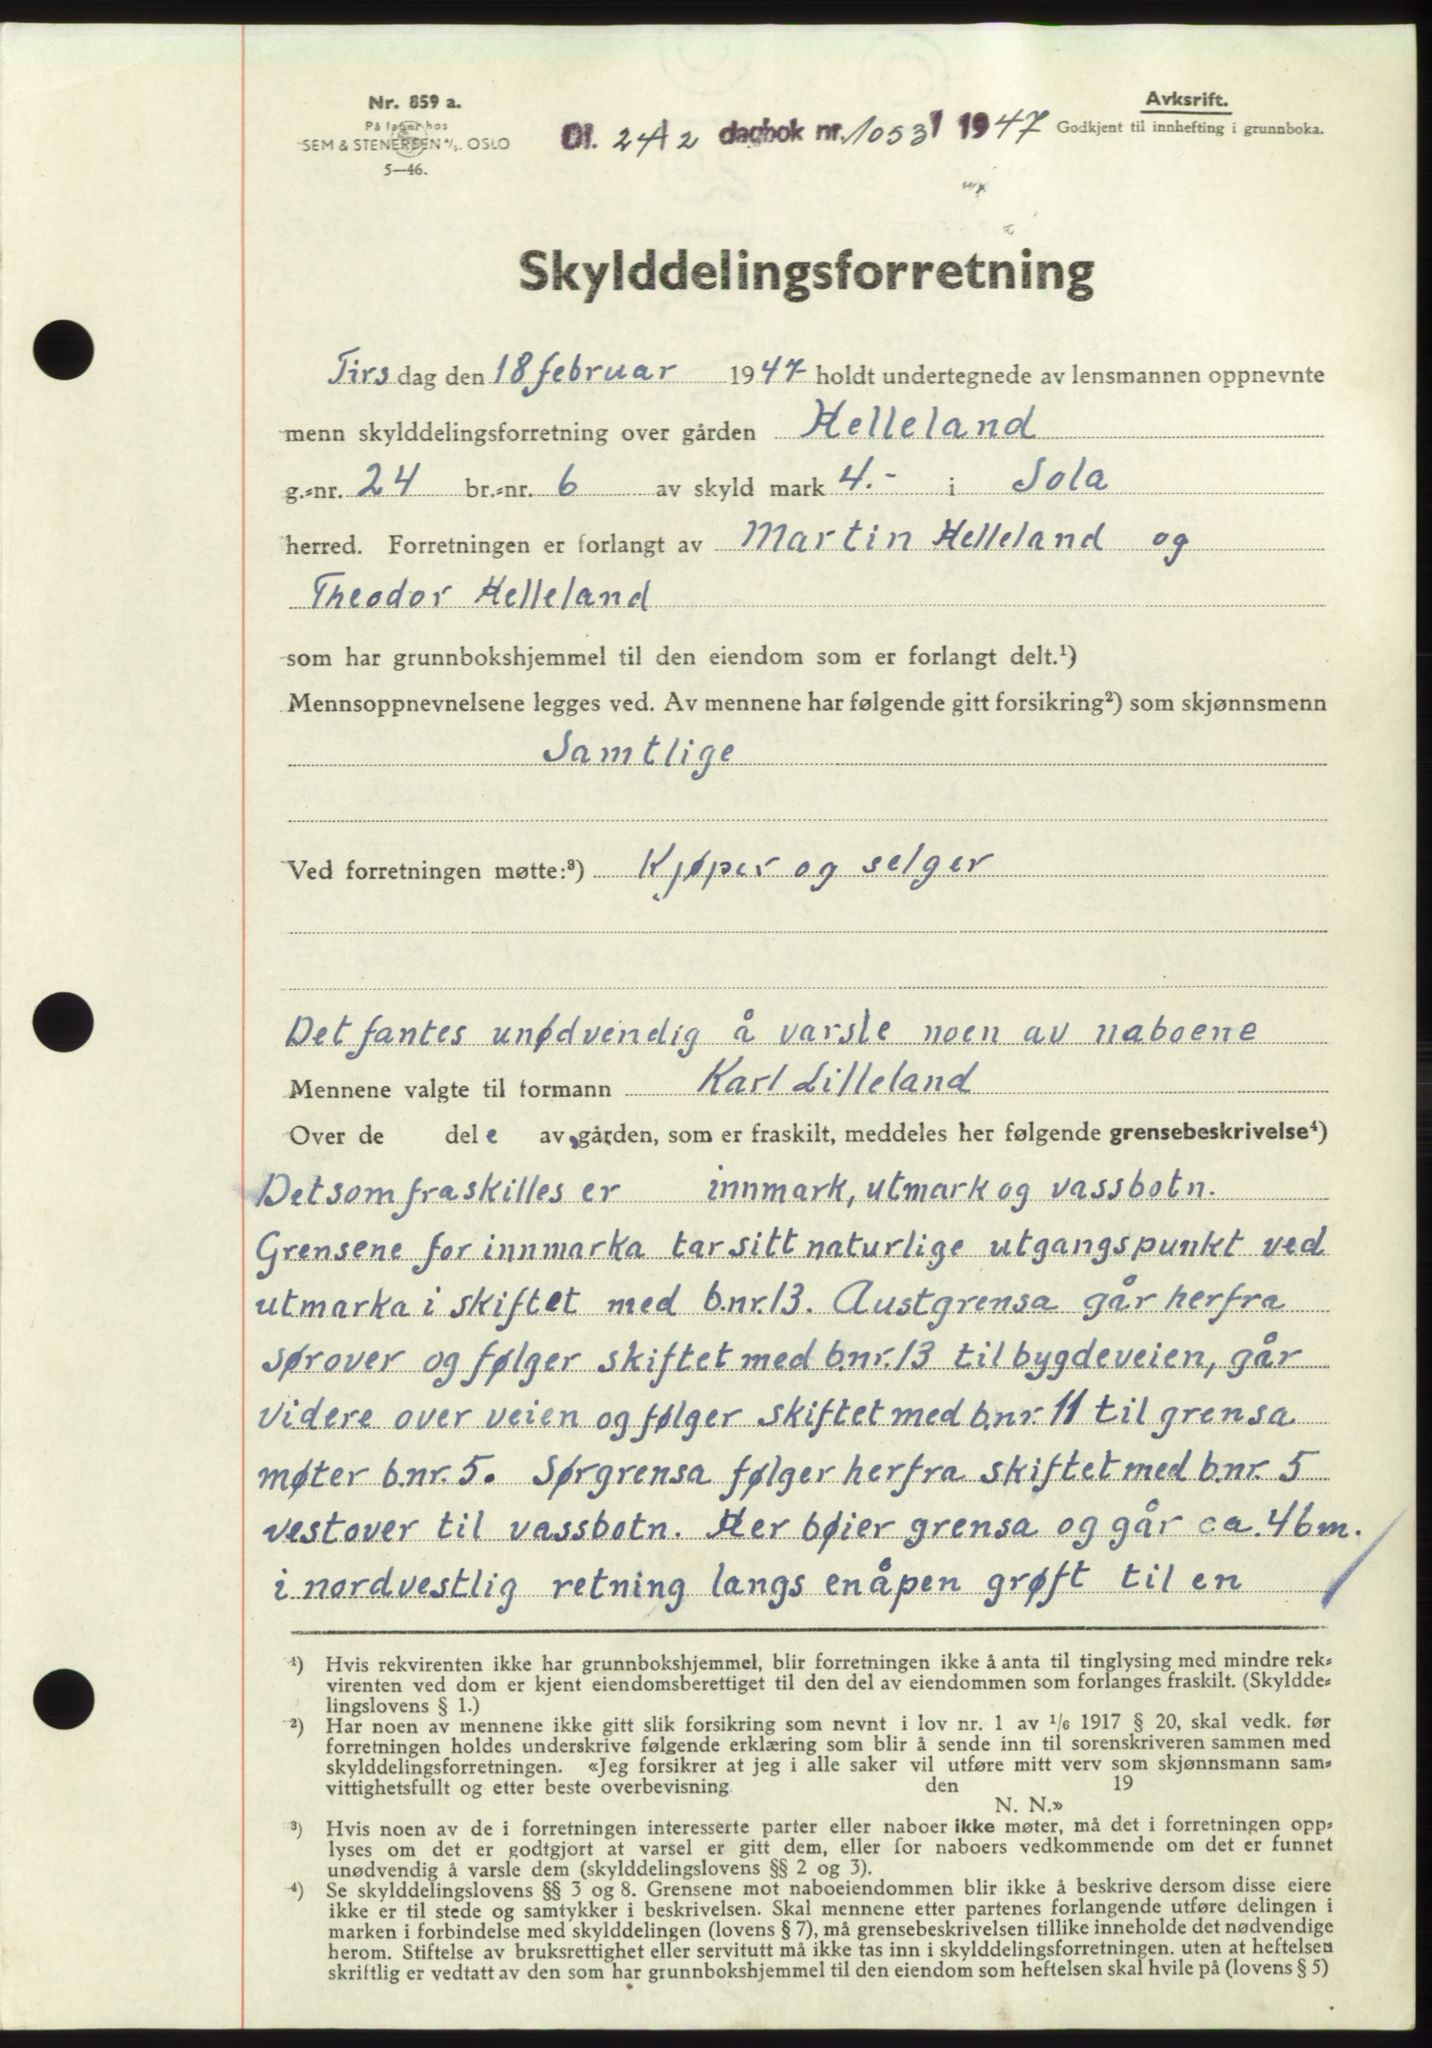 Nr. 859 a.
På lager hos
SEM & STENERSEN A/S. OSLO
5—46.
Avksrift.
Ol. 242 dagbok nr. 1053 1947 Godkjent til innhefting i grunnboka.
Skylddelingsforretning
Tirsdag den 18 februar 1947 holdt undertegnede av lensmannen oppnevnte
menn skylddelingsforretning over gården Helleland
g.=nr. 24 br.=nr. 6 av skyld mark 4.- i Sola
herred. Forretningen er forlangt av Martin Helleland og
Theodor Helleland
som har grunnbokshjemmel til den eiendom som er forlangt delt.¹)
Mennsoppnevnelsene legges ved. Av mennene har følgende gitt forsikring²) som skjønnsmenn
Samtlige
Ved forretningen møtte:³) Kjøper og selger
Det fantes unødvendig å varsle noen av naboene
Mennene valgte til formann Karl Lilleland
Over de dele av gården, som er fraskilt, meddeles her følgende grensebeskrivelse⁴)
Det som fraskilles er innmark, utmark og vassbotn.
Grensene for innmarka tar sitt naturlige utgangspunkt ved
utmarka i skiftet med b.nr. 13. Austgrensa går herfra
sørover og følger skiftet med b.nr. 13 til bygdeveien, går
videre over veien og følger skiftet med b.nr. 11 til grensa
møter b.nr. 5. Sørgrensa følger herfra skiftet med b.nr. 5
vestover til vassbotn. Her bøier grensa og går ca. 46 m.
i nordvestlig retning langs en åpen grøft til en
¹) Hvis rekvirenten ikke har grunnbokshjemmel, blir forretningen ikke å anta til tinglysing med mindre rek=
virenten ved dom er kjent eiendomsberettiget til den del av eiendommen som forlanges fraskilt. (Skyldde=
lingslovens § 1.)
²) Har noen av mennene ikke gitt slik forsikring som nevnt i lov nr. 1 av 1/6 1917 § 20, skal vedk. før
forretningen holdes underskrive følgende erklæring som blir å sende inn til sorenskriveren sammen med
skylddelingsforretningen. «Jeg forsikrer at jeg i alle saker vil utføre mitt verv som skjønnsmann sam=
vittighetsfullt og etter beste overbevisning. den 19
N. N.»
³) Hvis noen av de i forretningen interesserte parter eller naboer ikke møter, må det i forretningen opp=
lyses om det er godtgjort at varsel er gitt dem, eller for naboers vedkommende om det er funnet
unødvendig å varsle dem (skylddelingslovens §§ 2 og 3).
⁴) Se skylddelingslovens §§ 3 og 8. Grensene mot naboeiendommen blir ikke å beskrive dersom disse eiere
ikke er til stede og samtykker i beskrivelsen. Skal mennene etter partenes forlangende utføre delingen i
marken i forbindelse med skylddelingen (lovens § 7), må grensebeskrivelsen tillike inneholde det nødvendige
herom. Stiftelse av bruksrettighet eller servitutt må ikke tas inn i skylddelingsforretningen. uten at heftelsen
skriftlig er vedtatt av den som har grunnbokshjemmel til den eiendom som heftelsen skal hvile på (lovens § 5)